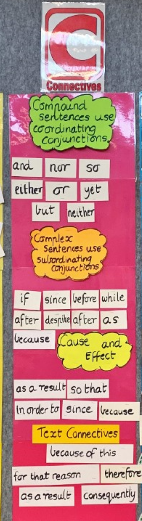 Connectives
Compound
sentences use
coordinating
conjunctions
and nor so
either or yet
but neither
Complex
sentences use
subordinating
conjunctions
if since before while
after despite after as
because
Cause and
Effect
as a result so that
In order to since because
Text Connectives
because of this
for that reason therefore
as a result consequently